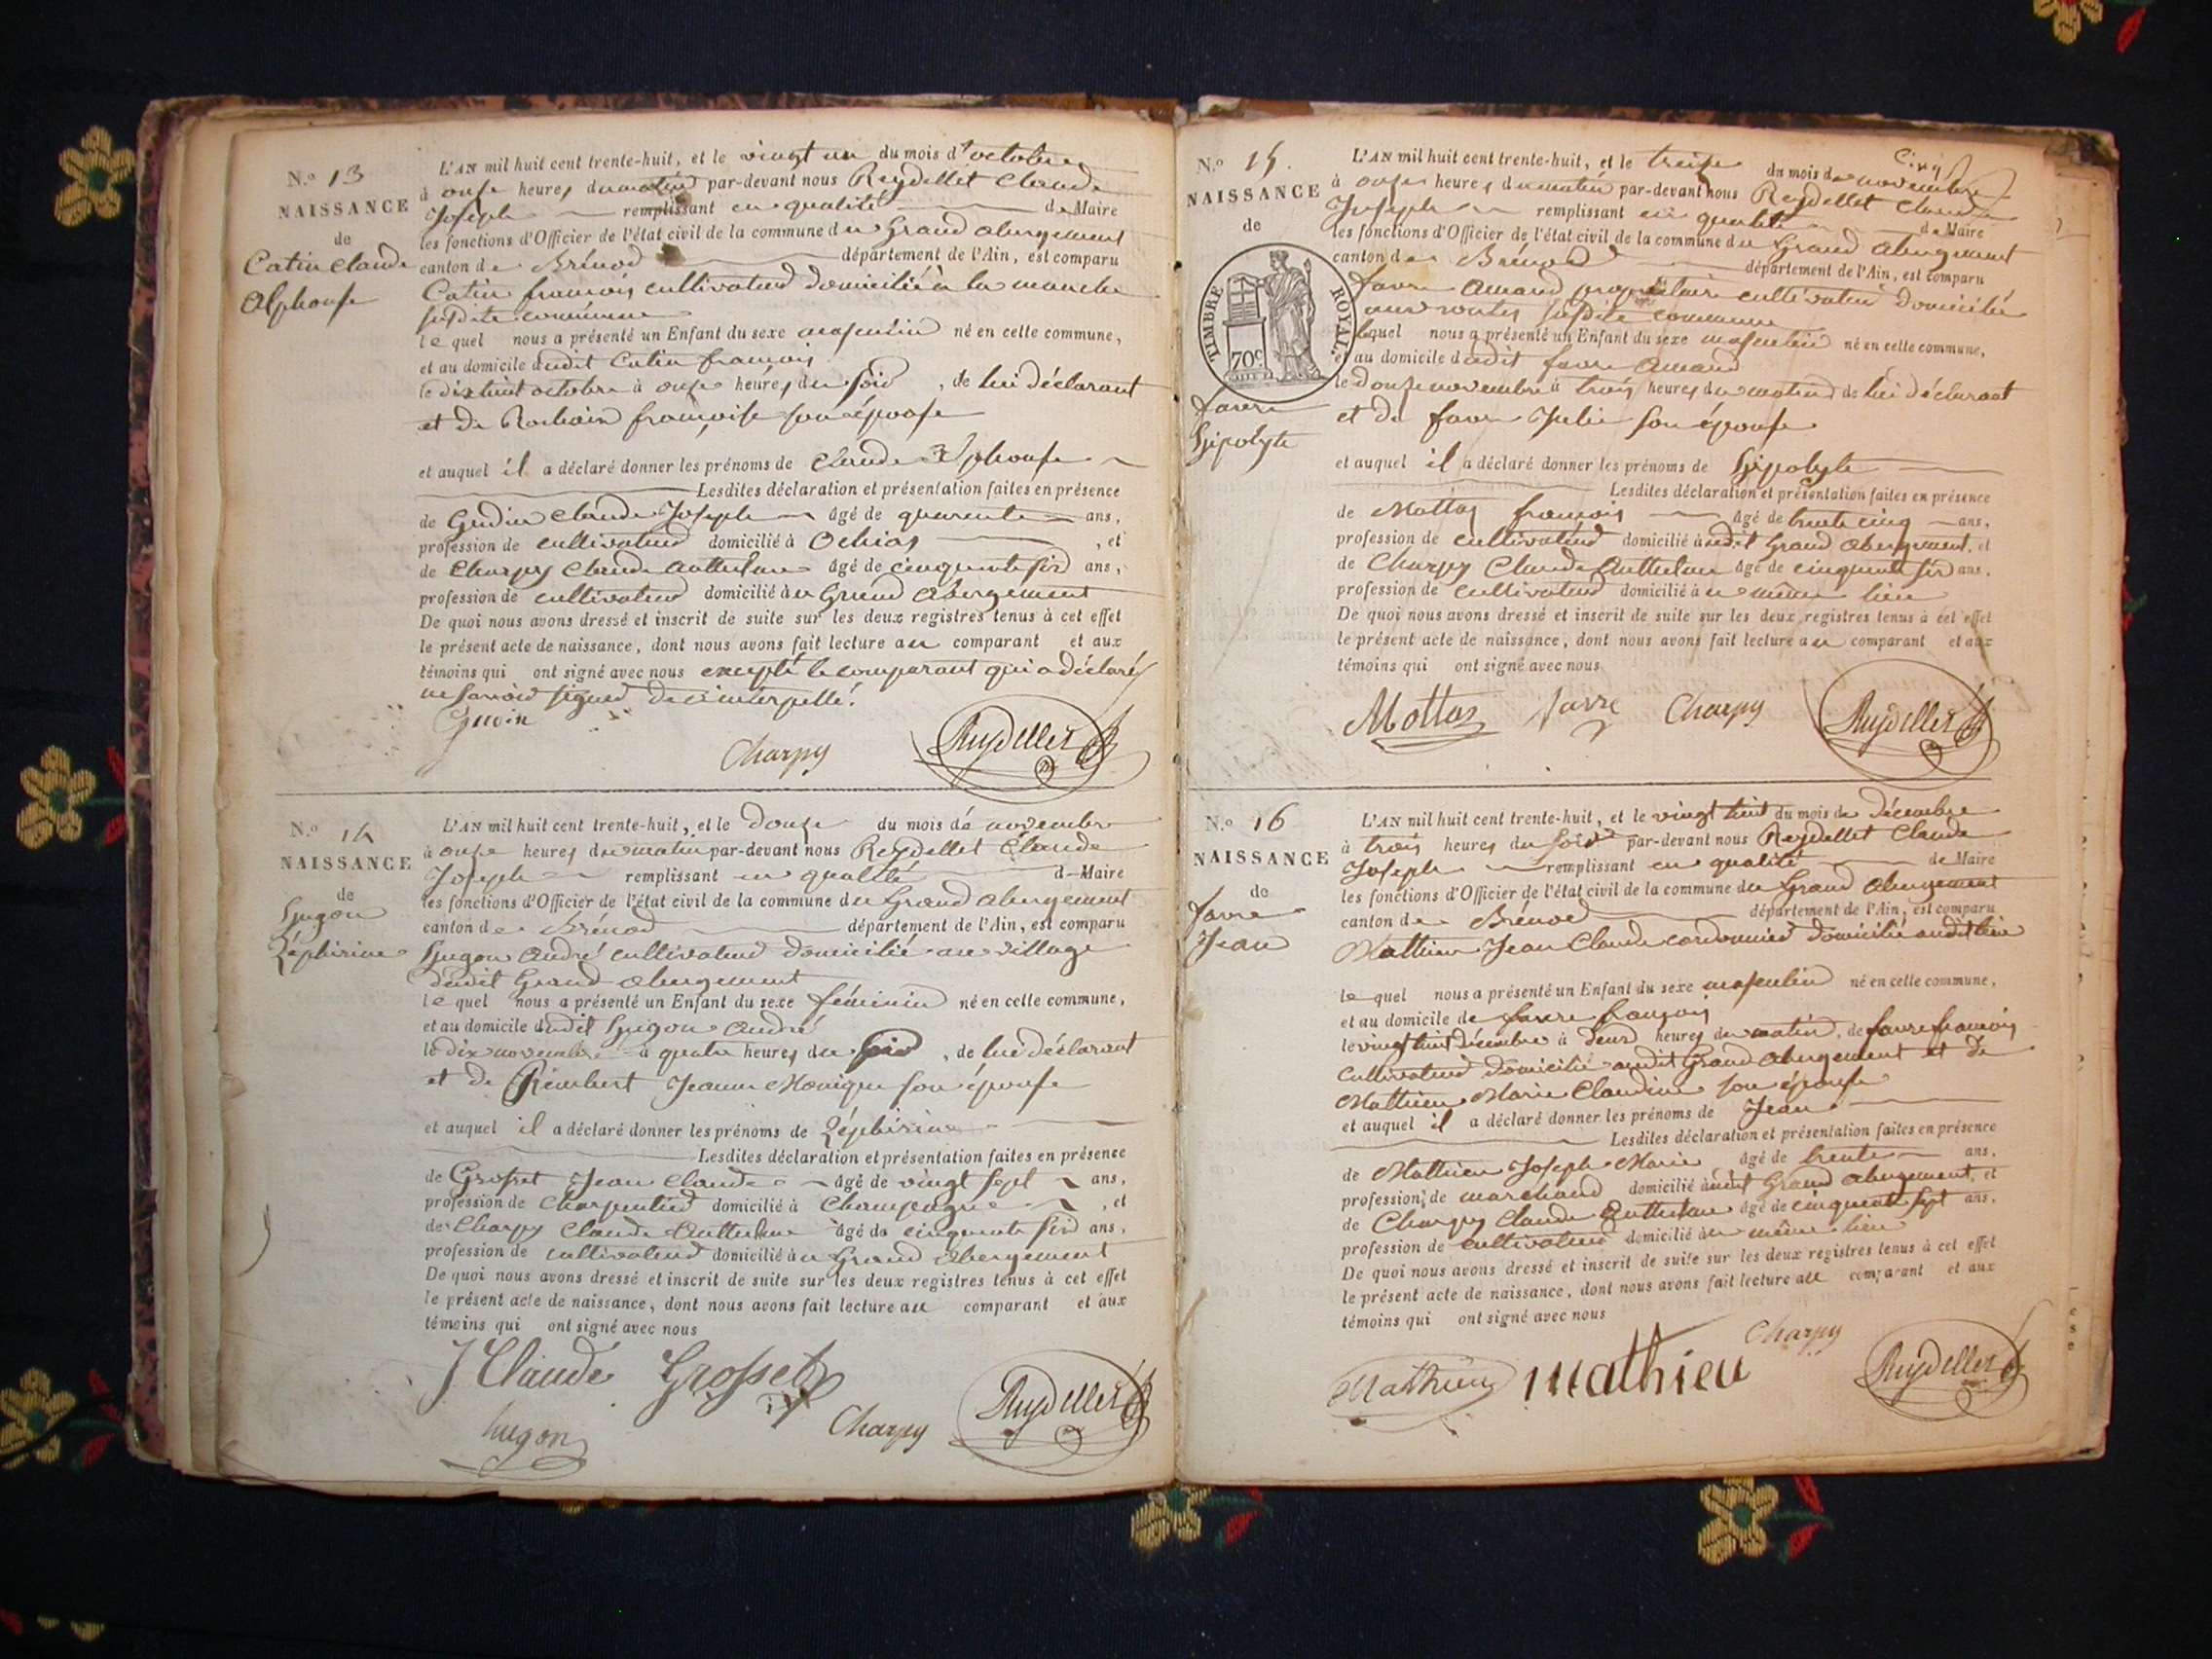 N.º 13
NAISSANCE
de
Catin Claude
Alphonse
L'AN mil huit cent trente-huit, et le vingt un du mois d'octobre
à onze heures du matin par-devant nous Reydellet Claude
Joseph remplissant en qualité de Maire
les fonctions d'Officier de l'état civil de la commune du Grand abergement
canton de Brénod département de l'Ain, est comparu
Catin françois cultivateur domicilié à la manche
susdite commune
lequel nous a présenté un Enfant du sexe masculin né en cette commune,
et au domicile dudit Catin françois
le dixhuit octobre à onze heures du soir, de lui déclarant
et de Rochaix françoise son épouse
et auquel il a déclaré donner les prénoms de Claude Alphonse
Lesdites déclaration et présentation faites en présence
de Claude Joseph âgé de quarente ans,
profession de cultivateur domicilié à Ochias, et
de Charpy Claude Anthelme âgé de cinquante six ans,
profession de cultivateur domicilié au Grand Abergement
De quoi nous avons dressé et inscrit de suite sur les deux registres tenus à cet effet
le présent acte de naissance, dont nous avons fait lecture au comparant et aux
témoins qui ont signé avec nous excepté le comparant qui a déclaré
ne savoir signer de ce interpellé.
Charpy Reydellet
N.º 14
NAISSANCE
de
hugon
Zéphirine
L'AN mil huit cent trente-huit, et le douze du mois de novembre
à onze heures du matin par-devant nous Reydellet Claude
Joseph remplissant en qualité d Maire
les fonctions d'Officier de l'état civil de la commune du Grand abergement
canton de Brénod département de l'Ain, est comparu
hugon André cultivateur domicilié au village
dudit Grand abergement
lequel nous a présenté un Enfant du sexe féminin né en cette commune,
et au domicile dudit hugon André
le dix novembre à quatre heures du soir, de lui déclarant
et de Rimbert Jeanne Monique son épouse
et auquel il a déclaré donner les prénoms de Zéphirine
Lesdites déclaration et présentation faites en présence
de Grosset Jean Claude âgé de vingt sept ans,
profession de Charpentier domicilié à Champagne, et
de Charpy Claude Anthelme âgé de cinquante six ans,
profession de cultivateur domicilié au Grand abergement
De quoi nous avons dressé et inscrit de suite sur les deux registres tenus à cet effet
le présent acte de naissance, dont nous avons fait lecture au comparant et aux
témoins qui ont signé avec nous
J Claude Grosset
hugon Charpy Reydellet
N.º 15.
NAISSANCE
de
TIMBRE ROYAL.
70c
favre
hipolyte
L'AN mil huit cent trente-huit, et le treize du mois de novembre
à onze heures du matin par-devant nous Reydellet Claude
Joseph remplissant en qualité de Maire
les fonctions d'Officier de l'état civil de la commune du Grand abergement
canton de Brénod département de l'Ain, est comparu
favre Amand propriétaire cultivateur domicilié
aux routes susdite commune
lequel nous a présenté un Enfant du sexe masculin né en cette commune,
et au domicile dudit favre Amand
le douze novembre à trois heures du matin de lui déclarant
et de favre Julie son épouse
et auquel il a déclaré donner les prénoms de hipolyte
Lesdites déclaration et présentation faites en présence
de Mottaz françois âgé de trente cinq ans,
profession de cultivateur domicilié audit Grand abergement, et
de Charpy Claude Anthelme âgé de cinquante six ans,
profession de cultivateur domicilié au même lieu
De quoi nous avons dressé et inscrit de suite sur les deux registres tenus à cet effet
le présent acte de naissance, dont nous avons fait lecture au comparant et aux
témoins qui ont signé avec nous
Mottaz favre Charpy Reydellet
N.º 16
NAISSANCE
de
favre
Jean
L'AN mil huit cent trente-huit, et le vingt huit du mois de décembre
à trois heures du soir par-devant nous Reydellet Claude
Joseph remplissant en qualité de Maire
les fonctions d'Officier de l'état civil de la commune du Grand abergement
canton de Brénod département de l'Ain, est comparu
Mathieu Jean Claude cordonnier domicilié audit lieu
lequel nous a présenté un Enfant du sexe masculin né en cette commune,
et au domicile de favre françois
le vingt huit décembre à deux heures du matin, de favre françois
cultivateur domicilié audit Grand abergement et de
Mathieu Marie Claudine son épouse
et auquel il a déclaré donner les prénoms de Jean
Lesdites déclaration et présentation faites en présence
de Mathieu Joseph Marie âgé de trente ans,
profession de marchand domicilié audit Grand abergement, et
de Charpy Claude Anthelme âgé de cinquante sept ans,
profession de cultivateur domicilié au même lieu
De quoi nous avons dressé et inscrit de suite sur les deux registres tenus à cet effet
le présent acte de naissance, dont nous avons fait lecture au comparant et aux
témoins qui ont signé avec nous
Mathieu mathieu Charpy Reydellet